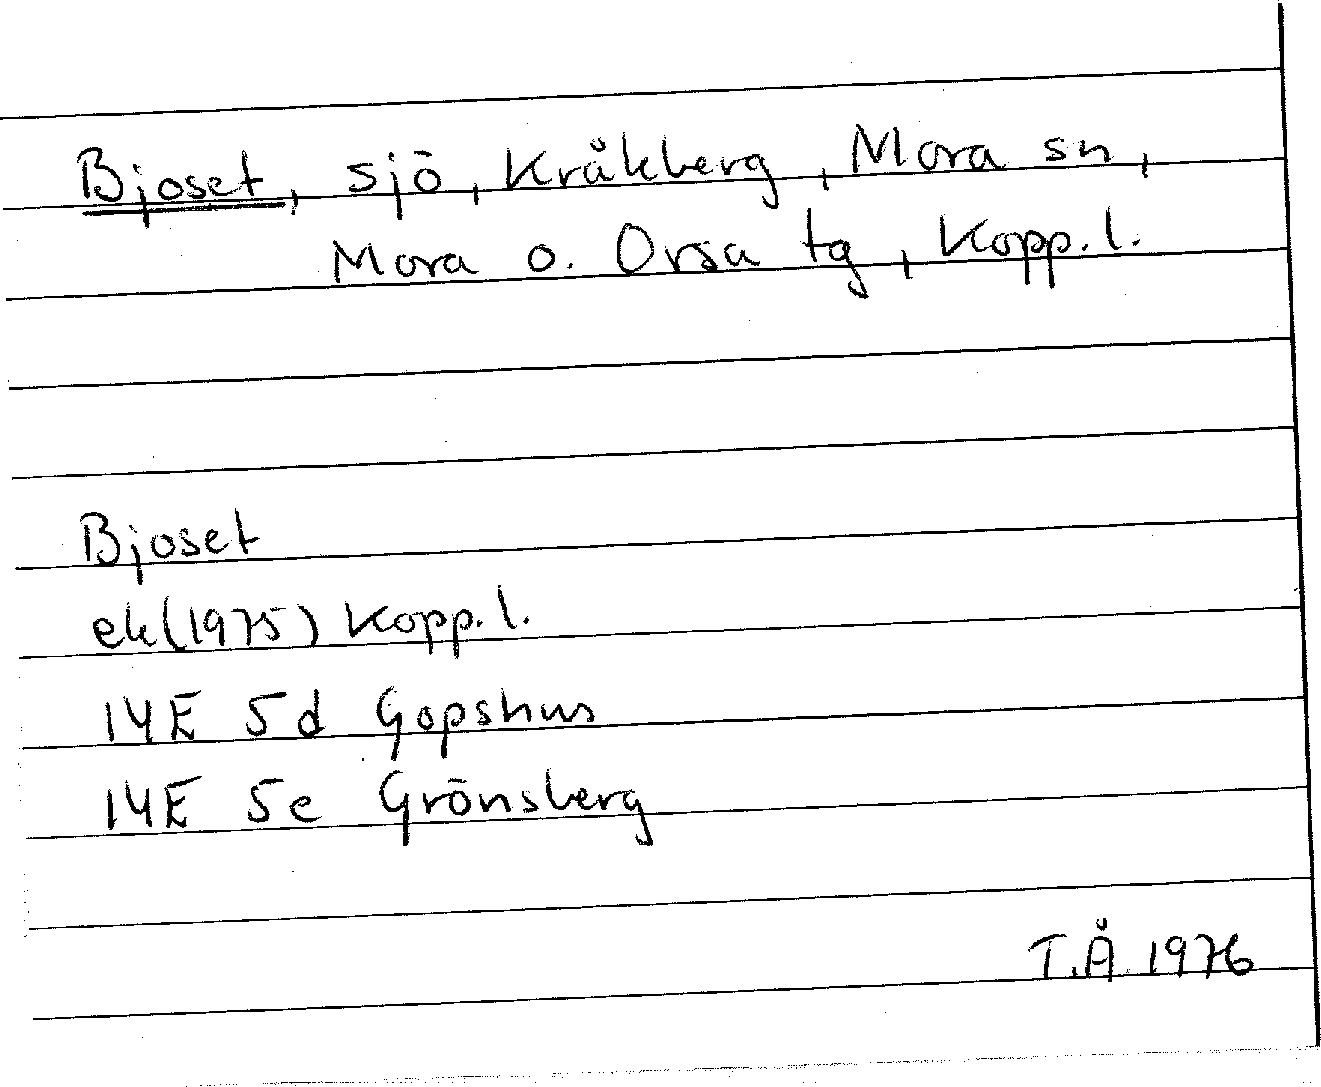 Bjoset, sjö, Kråkberg, Mora sn,
Mora o. Orsa tg, Kopp. l.
Bjoset
ek (1975) Kopp. l.
14E 5d Gopshus
14E 5e Grönsberg
T.Å 1976